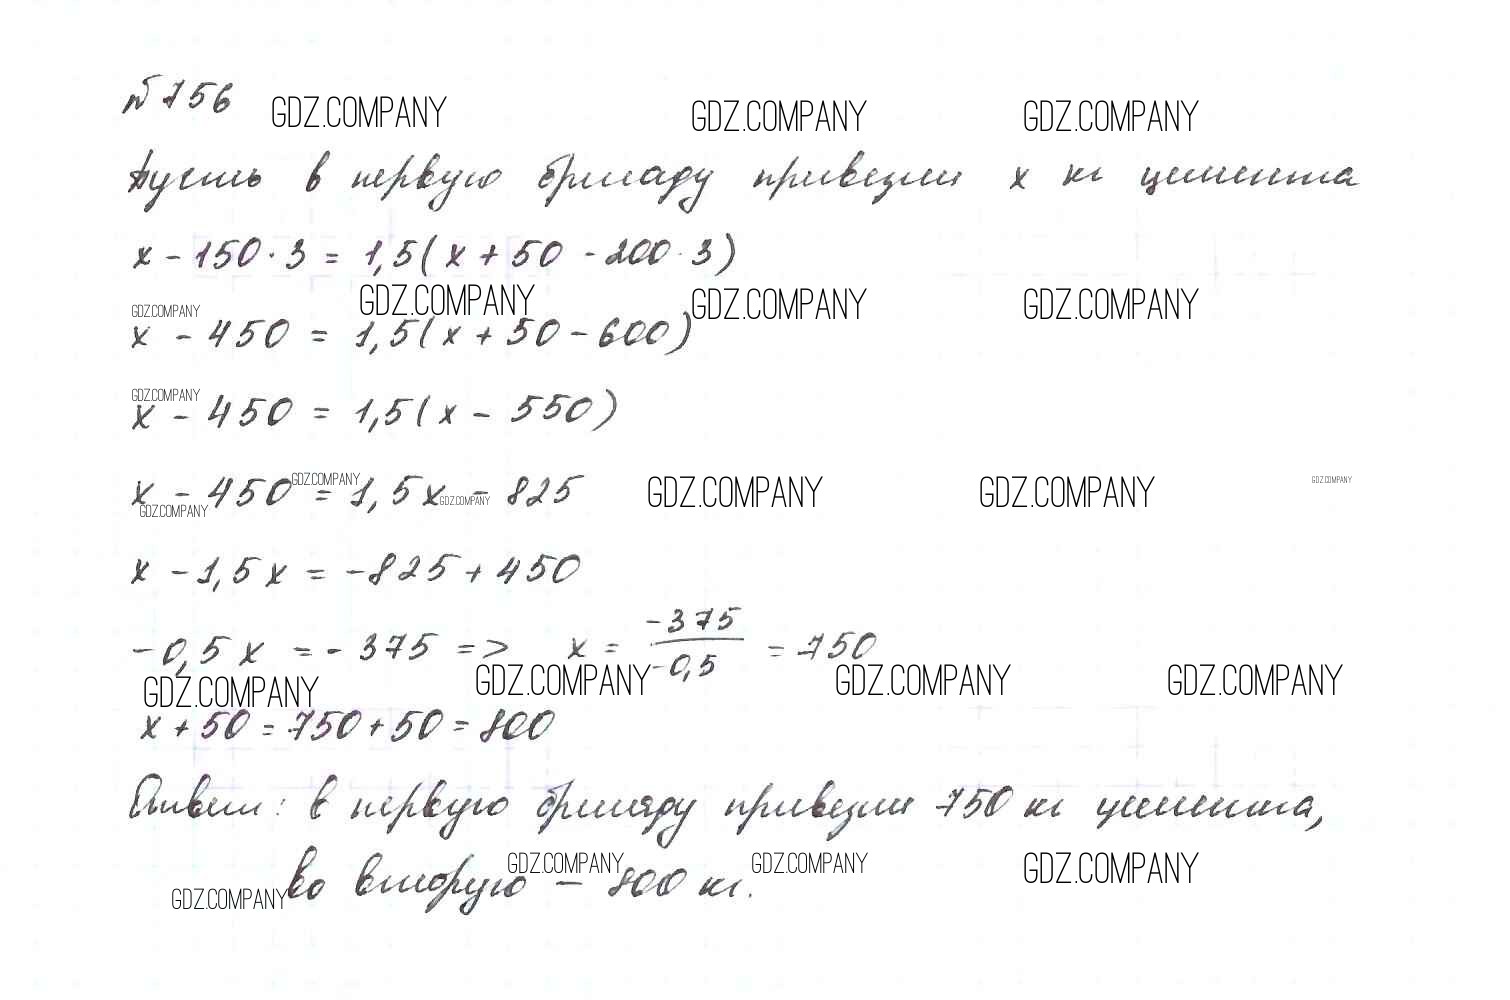 № 756
GDZ.COMPANY GDZ.COMPANY GDZ.COMPANY
Пусть в первую бригаду привезли x кг цемента
x - 150 · 3 = 1,5(x + 50 - 200 · 3)
GDZ.COMPANY GDZ.COMPANY GDZ.COMPANY GDZ.COMPANY
x - 450 = 1,5(x + 50 - 600)
GDZ.COMPANY
x - 450 = 1,5(x - 550)
GDZ.COMPANY GDZ.COMPANY GDZ.COMPANY GDZ.COMPANY
x - 450 = 1,5x - 825
GDZ.COMPANY GDZ.COMPANY
x - 1,5x = -825 + 450
-0,5x = -375 => x = -375 / -0,5 = 750
GDZ.COMPANY GDZ.COMPANY GDZ.COMPANY GDZ.COMPANY
x + 50 = 750 + 50 = 800
Ответ: в первую бригаду привезли 750 кг цемента,
GDZ.COMPANY GDZ.COMPANY GDZ.COMPANY
во вторую - 800 кг.
GDZ.COMPANY